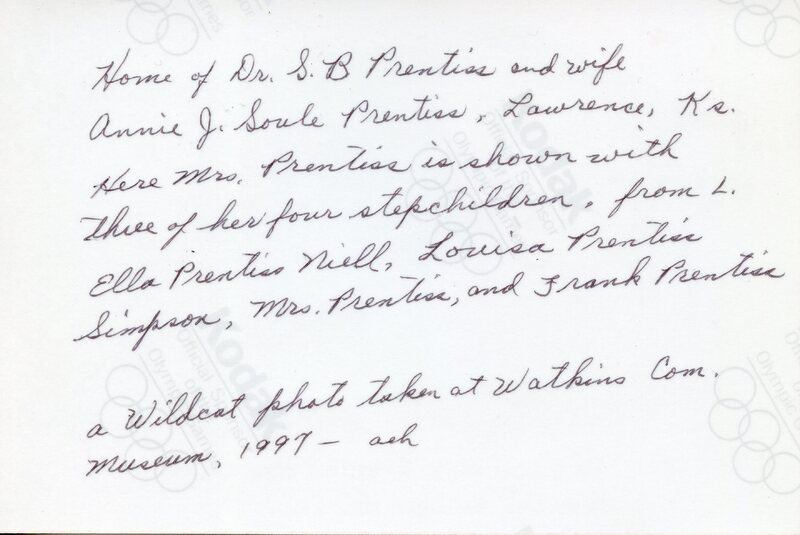 Home of Dr. S. B Prentiss and wife
Annie J. Soule Prentiss, Lawrence, Ks.
Here Mrs. Prentiss is shown with
three of her four stepchildren, from L.
Ella Prentiss Niell, Louisa Prentiss
Simpson, Mrs. Prentiss, and Frank Prentiss
a Wildcat photo taken at Watkins Com.
Museum, 1997 - aeh
Kodak
Official Sponsor
Olympic Games
Kodak
Official Sponsor
Olympic Games